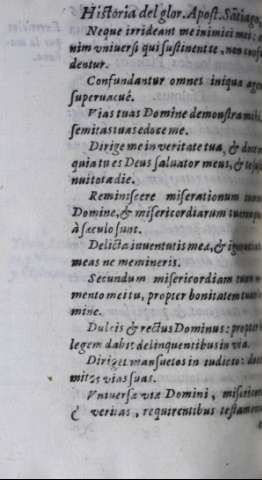 Historia del glor. Apost. Sãtiago,
Neque irrideant me inimici mei: e
nim vniuersi qui sustinent te, non confu
dentur.
Confundantur omnes iniqua agen
superuacuè.
Vias tuas Domine demonstra mihi,
semitas tuas edoce me.
Dirige me in veritate tua, & doce
quia tu es Deus saluator meus, & te susti
nui tota die.
Reminiscere miserationum tuarum
Domine, & misericordiarum tuarum
à sæculo sunt.
Delicta iuuentutis meæ, & ignorantias
meas ne memineris.
Secundum misericordiam tuam me
mento mei tu, propter bonitatem tuam
mine.
Dulcis & rectus Dominus: propter
legem dabit delinquentibus in via.
Diriget mansuetos in iudicio: doce
mites vias suas.
Vniuersæ viæ Domini, misericor
& veritas, requirentibus testamen